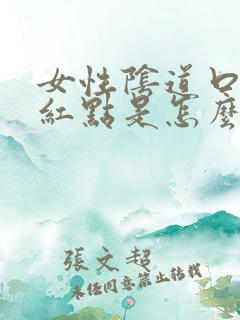 女性陰道口
紅點是怎麼
張文超
未經同意禁止轉載